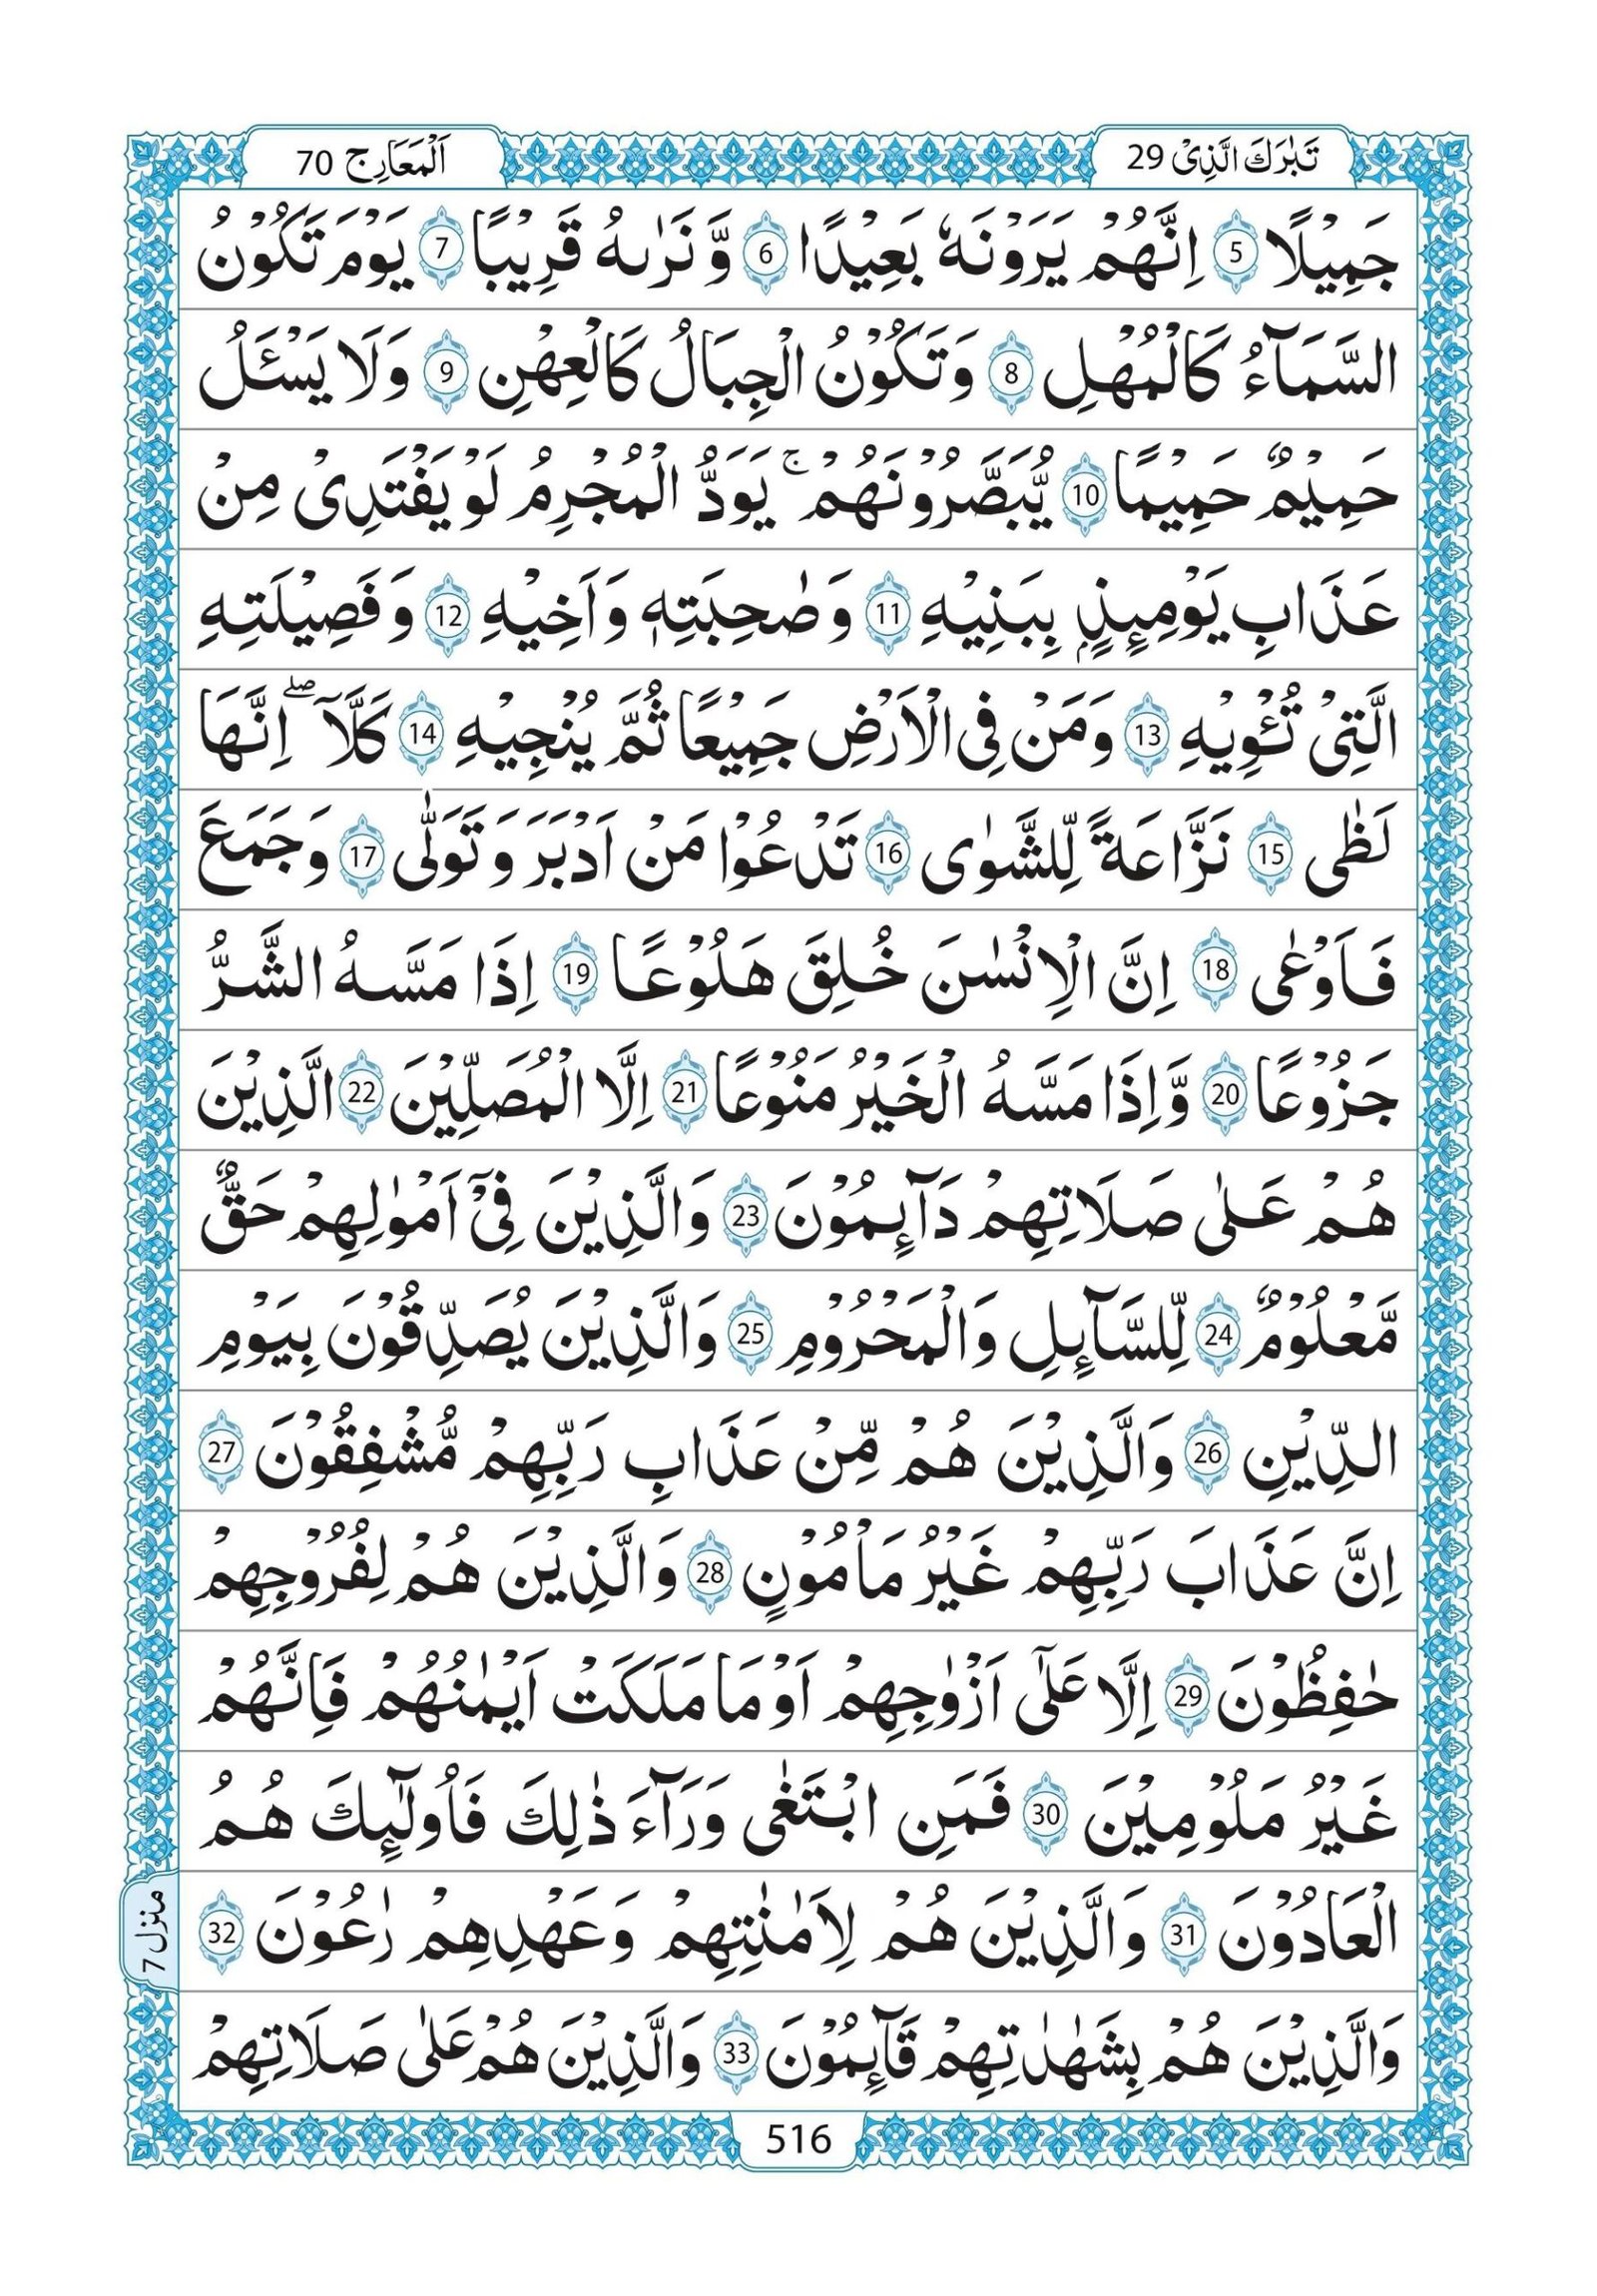 تَبٰرَكَ الَّذِیْ 29
اَلْمَعَارِج 70
جَمِیْلًا 5 اِنَّهُمْ یَرَوْنَهٗ بَعِیْدًا 6 وَّ نَرٰىهُ قَرِیْبًا 7 یَوْمَ تَكُوْنُ
السَّمَآءُ كَالْمُهْلِ 8 وَ تَكُوْنُ الْجِبَالُ كَالْعِهْنِ 9 وَ لَا یَسْئَلُ
حَمِیْمٌ حَمِیْمًا 10 یُّبَصَّرُوْنَهُمْ ۚ یَوَدُّ الْمُجْرِمُ لَوْ یَفْتَدِیْ مِنْ
عَذَابِ یَوْمِىِٕذٍۭ بِبَنِیْهِ 11 وَ صٰحِبَتِهٖ وَ اَخِیْهِ 12 وَ فَصِیْلَتِهِ
الَّتِیْ تُـْٔوِیْهِ 13 وَ مَنْ فِی الْاَرْضِ جَمِیْعًا ثُمَّ یُنْجِیْهِ 14 كَلَّا ۖ اِنَّهَا
لَظٰى 15 نَزَّاعَةً لِّلشَّوٰى 16 تَدْعُوْا مَنْ اَدْبَرَ وَ تَوَلّٰى 17 وَ جَمَعَ
فَاَوْعٰى 18 اِنَّ الْاِنْسٰنَ خُلِقَ هَلُوْعًا 19 اِذَا مَسَّهُ الشَّرُّ
جَزُوْعًا 20 وَّ اِذَا مَسَّهُ الْخَیْرُ مَنُوْعًا 21 اِلَّا الْمُصَلِّیْنَ 22 الَّذِیْنَ
هُمْ عَلٰى صَلَاتِهِمْ دَآىِٕمُوْنَ 23 وَ الَّذِیْنَ فِیْۤ اَمْوٰلِهِمْ حَقٌّ
مَّعْلُوْمٌ 24 لِّلسَّآىِٕلِ وَ الْمَحْرُوْمِ 25 وَ الَّذِیْنَ یُصَدِّقُوْنَ بِیَوْمِ
الدِّیْنِ 26 وَ الَّذِیْنَ هُمْ مِّنْ عَذَابِ رَبِّهِمْ مُّشْفِقُوْنَ 27
اِنَّ عَذَابَ رَبِّهِمْ غَیْرُ مَاْمُوْنٍ 28 وَ الَّذِیْنَ هُمْ لِفُرُوْجِهِمْ
حٰفِظُوْنَ 29 اِلَّا عَلٰۤى اَزْوٰجِهِمْ اَوْ مَا مَلَكَتْ اَیْمٰنُهُمْ فَاِنَّهُمْ
غَیْرُ مَلُوْمِیْنَ 30 فَمَنِ ابْتَغٰى وَرَآءَ ذٰلِكَ فَاُولٰٓىِٕكَ هُمُ
الْعَادُوْنَ 31 وَ الَّذِیْنَ هُمْ لِاَمٰنٰتِهِمْ وَ عَهْدِهِمْ رٰعُوْنَ 32
وَ الَّذِیْنَ هُمْ بِشَهٰدٰتِهِمْ قَآىِٕمُوْنَ 33 وَ الَّذِیْنَ هُمْ عَلٰى صَلَاتِهِمْ
منزل 7
516